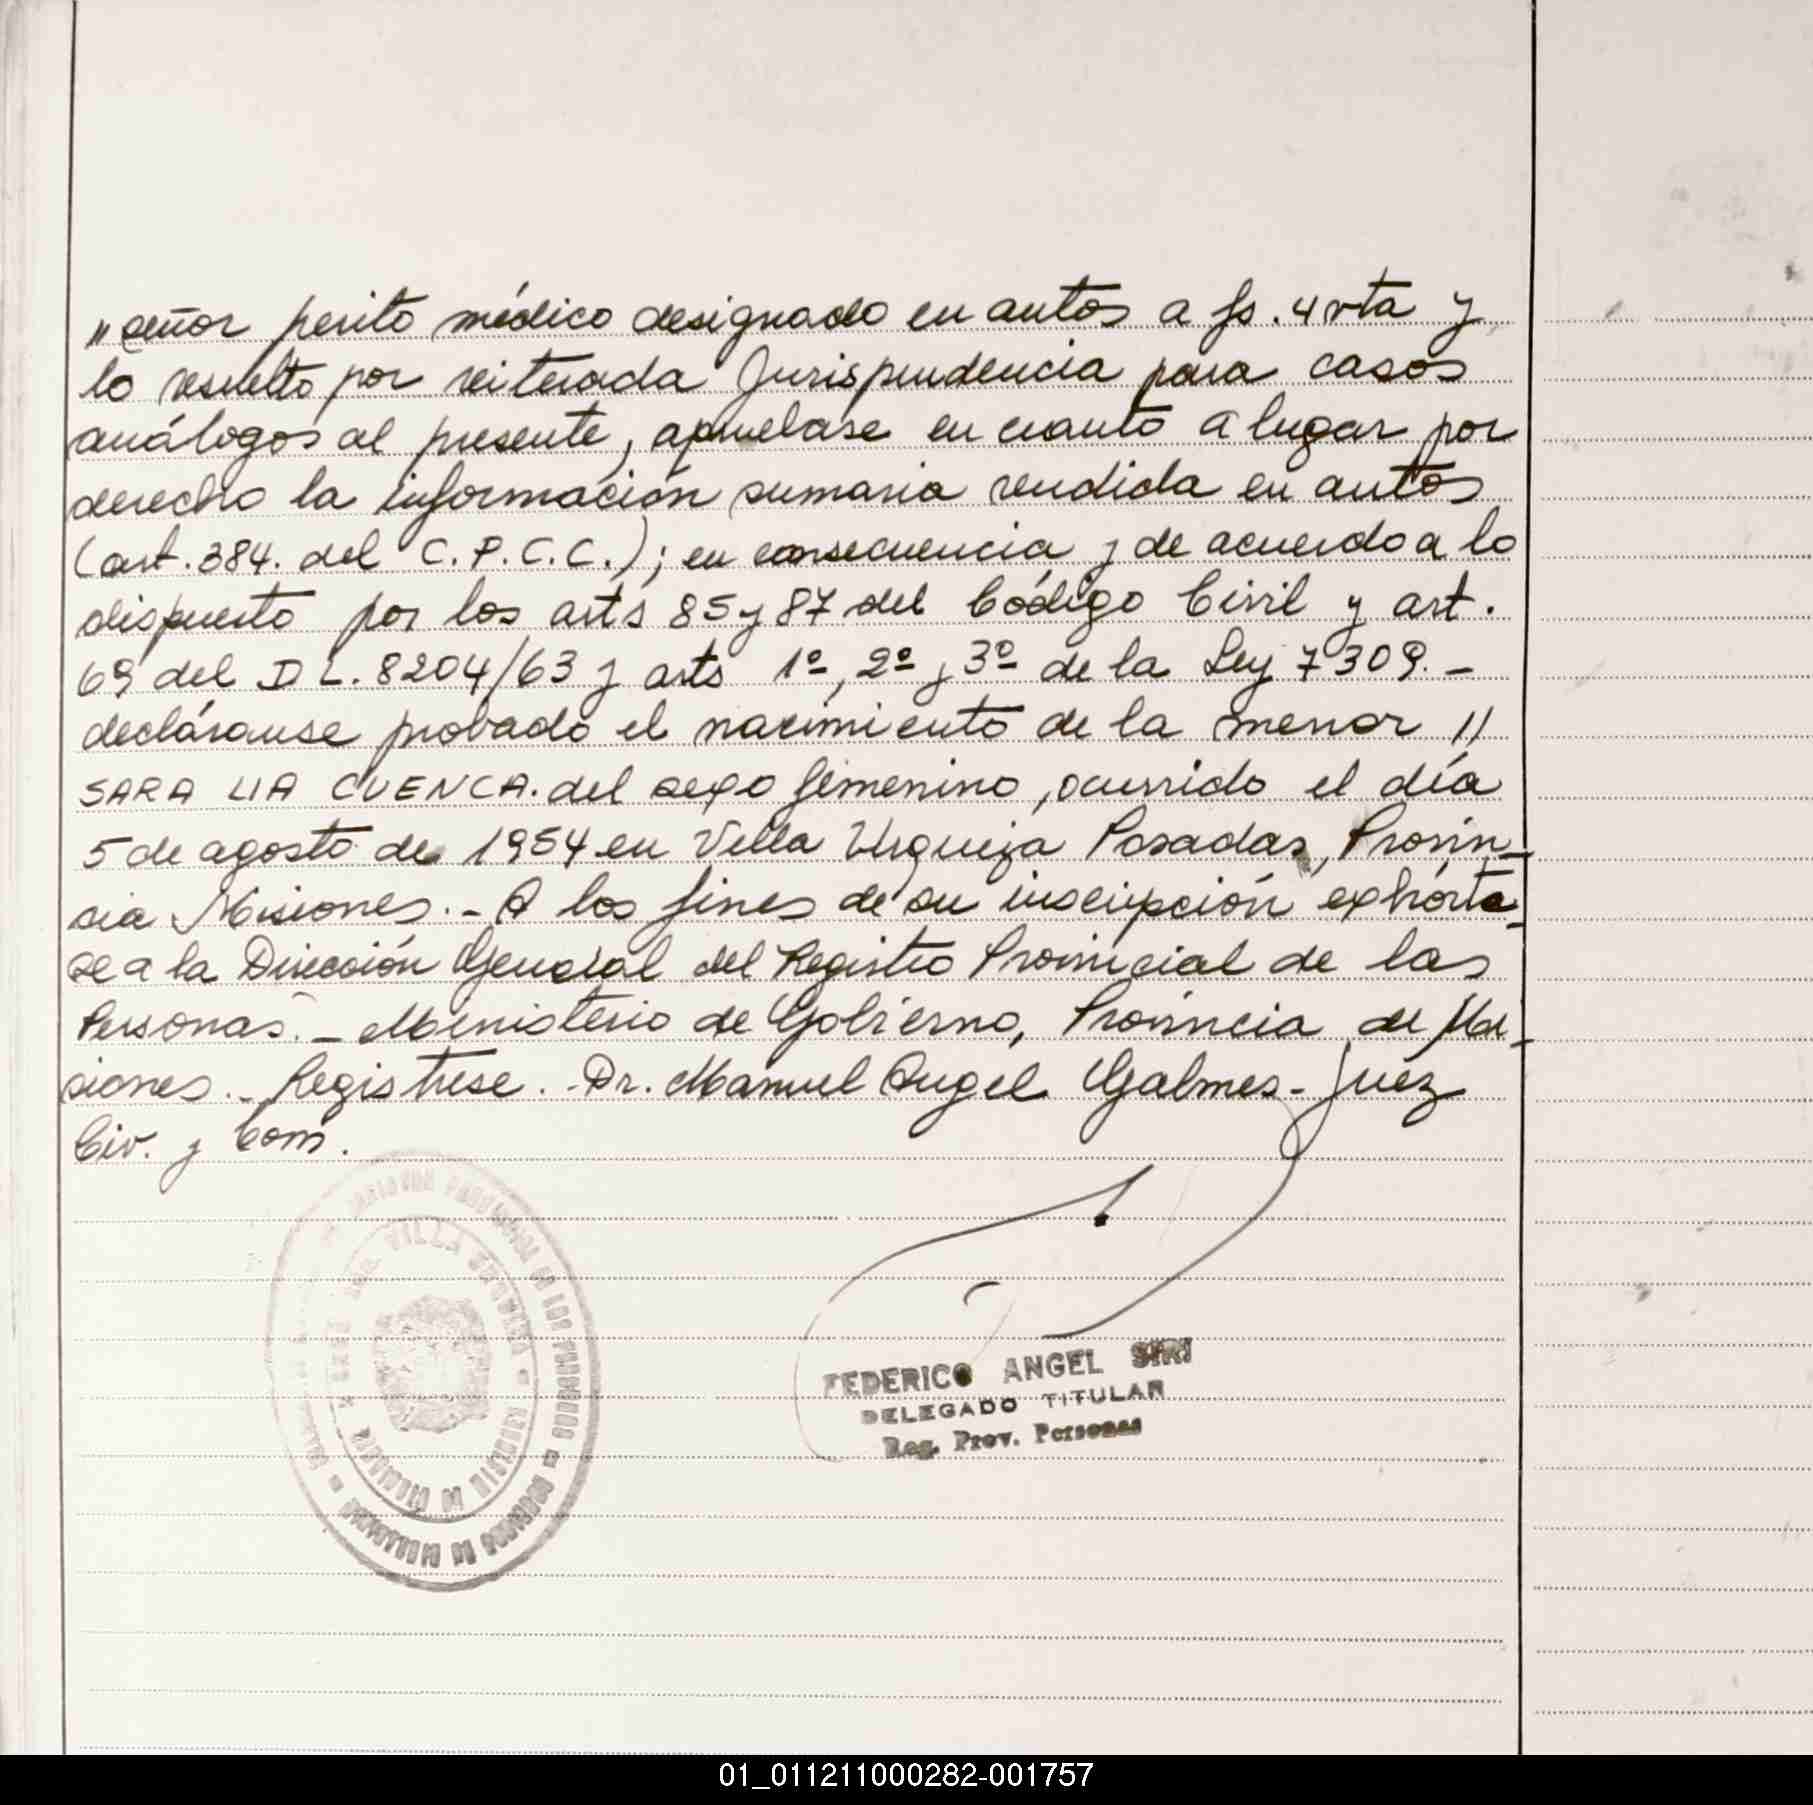 " señor perito médico designado en autos a fs. 4 vta y
lo resuelto por reiterada Jurisprudencia para casos
análogos al presente, apruebase en cuanto a lugar por
derecho la información sumaria rendida en autos
(art. 384. del C.P.C.C.); en consecuencia y de acuerdo a lo
dispuesto por los arts 85 y 87 del Código Civil y art.
69 del D L. 8204/63 y arts 1º, 2º y 3º de la Ley 7309. -
declárause probado el nacimiento de la menor //
SARA LIA CUENCA. del sexo femenino, ocurrido el día
5 de agosto de 1954 en Villa Urquiza Posadas, Provin-
cia Misiones. - A los fines de su inscripción exhórta-
se a la Dirección General del Registro Provincial de las
Personas. - Ministerio de Gobierno, Provincia de Mi-
siones. - Registrese. - Dr. Manuel Angel Galmes - Juez
Civ. y Com.
VILLA
FEDERICO ANGEL SIRI
DELEGADO TITULAR
Reg. Prov. Personas
01_011211000282-001757